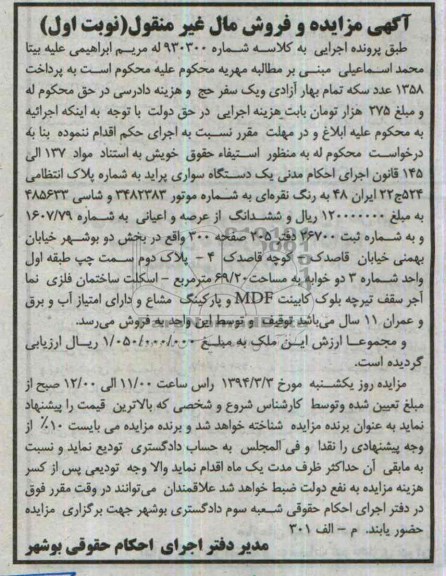 آگهی مزایده و فروش مال غیر منقول(نوبت اول)
طبق پرونده اجرایی به کلاسه شماره ۹۳۰۳۰۰ له مریم ابراهیمی علیه بیتا
محمد اسماعیلی مبنی بر مطالبه مهریه محکوم علیه محکوم است به پرداخت
۱۳۵۸ عدد سکه تمام بهار آزادی ویک سفر حج و هزینه دادرسی در حق محکوم له
و مبلغ ۲۷۵ هزار تومان بابت هزینه اجرایی در حق دولت با توجه به اینکه اجرائیه
به محکوم علیه ابلاغ و در مهلت مقرر نسبت به اجرای حکم اقدام ننموده بنا به
درخواست محکوم له به منظور استیفاء حقوق خویش به استناد مواد ۱۳۷ الی
۱۴۵ قانون اجرای احکام مدنی یک دستگاه سواری پراید به شماره پلاک انتظامی
۵۲۴ج۲۲ ایران ۴۸ به رنگ نقره‌ای به شماره موتور ۳۴۸۲۳۸۳ و شاسی ۴۸۵۶۳۳
به مبلغ ۱۲۰۰۰۰۰۰۰ ریال و ششدانگ از عرصه و اعیانی به شماره ۱۶۰۷/۷۹
و به شماره ثبت ۲۶۷۰۰ دفتر ۲۰۵ صفحه ۲۰۰ واقع در بخش دو بوشهر خیابان
بهمنی خیابان قاصدک - کوچه قاصدک ۴ - پلاک دوم سمت چپ طبقه اول
واحد شماره ۳ دو خوابه به مساحت۶۹/۲۰ مترمربع - اسکلت ساختمان فلزی نما
آجر سقف تیرچه بلوک کابینت MDF و پارکینگ مشاع و دارای امتیاز آب و برق
و عمران ۱۱ سال می‌باشد توقیف و توسط این واحد به فروش می‌رسد.
و مجموعا ارزش این ملک به مبلغ ۱/۰۵۰/۰۰۰/۰۰۰ ریال ارزیابی
گردیده است.
مزایده روز یکشنبه مورخ ۱۳۹۴/۳/۳ راس ساعت ۱۱/۰۰ الی ۱۲/۰۰ صبح از
مبلغ تعیین شده وتوسط کارشناس شروع و شخصی که بالاترین قیمت را پیشنهاد
نماید به عنوان برنده مزایده شناخته خواهد شد و برنده مزایده می بایست ۱۰٪ از
وجه پیشنهادی را نقدا و فی المجلس به حساب دادگستری تودیع نماید و نسبت
به مابقی آن حداکثر ظرف مدت یک ماه اقدام نماید والا وجه تودیعی پس از کسر
هزینه مزایده به نفع دولت ضبط خواهد شد علاقمندان می‌توانند در وقت مقرر فوق
در دفتر اجرای احکام حقوقی شعبه سوم دادگستری بوشهر جهت برگزاری مزایده
حضور یابند. م - الف ۳۰۱
مدیر دفتر اجرای احکام حقوقی بوشهر